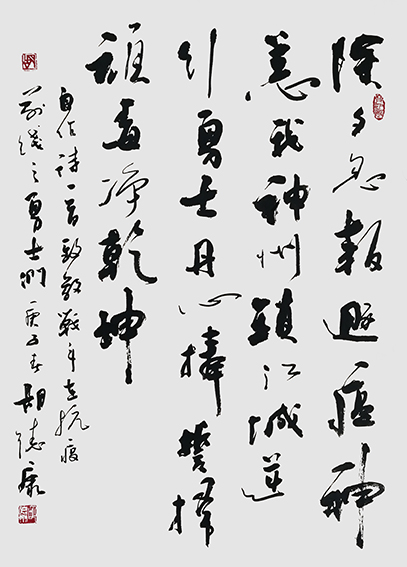 除夕急報遇瘟神
惡戰神州鎮江城逆
行勇士丹心捧
毒淨乾坤
自作詩一首致敬戰斗在抗疫
前綫之勇士們庚子春胡德康